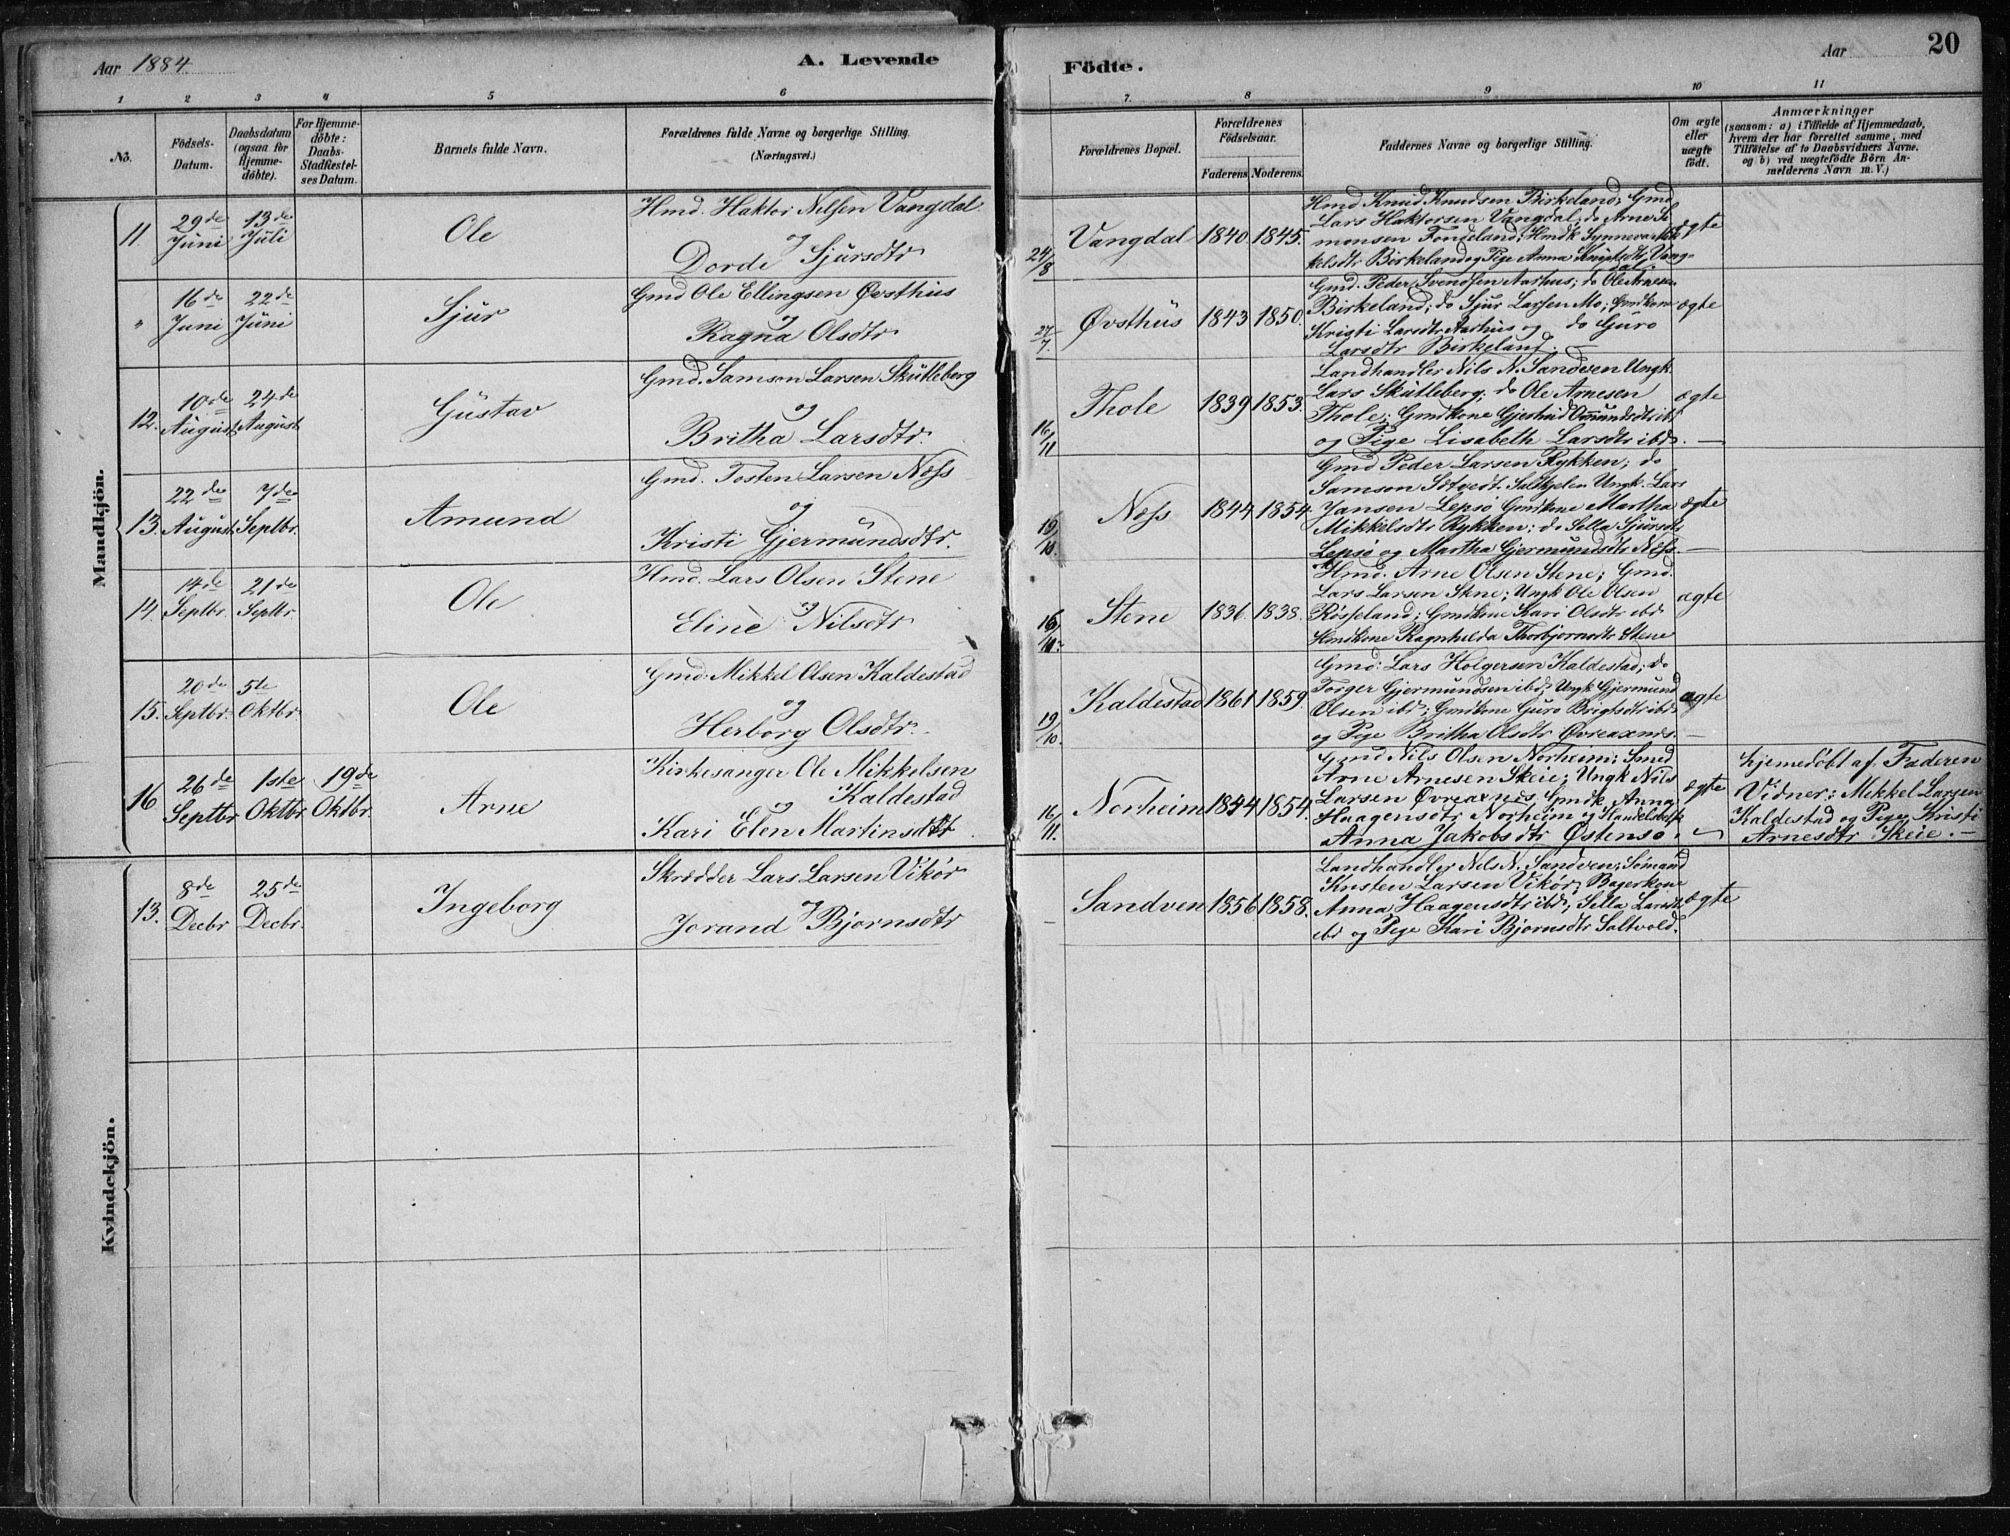 Aar 1884
A. Levende
Födte.
Aar
20
1
2
3
4
5
6
7.
8
9
10
11
No.
Födsels-
Datum.
Daabsdatum
(ogsaa for
Hjemme-
döbte).
For Hjemme-
döbte:
Daabs-
Stadfæstel-
ses Datum.
Barnets fulde Navn.
Forældrenes fulde Navne og borgerlige Stilling.
(Næringsvei.)
Forældrenes Bopæl.
Forældrenes
Födselsaar.
Faderens
Moderens.
Faddernes Navne og borgerlige Stilling.
Om ægte
eller
uægte
födt.
Anmærkninger
(saasom: a) i Tilfælde af Hjemmedaab,
hvem der har forrettet samme, med
Tilföielse af to Daabsvidners Navne.
og b) ved uægtefödte Börn An-
melderens Navn m. V.)
Mandkjön.
11
29de
Juni
13de
Juli
Ole
Hmd. Haktor Nilsen Vangdal
og
Dorde Sjursdtr
24/8
Vangdal
1840.
1845.
Hmd Knud Knudsen Birkeland; Gmd
Lars Haktorsen Vangdal; do Arne Si
monsen Fondeland; Hmdk Synneva
kelsdtr Birkeland og Pige Anna Vang-
dal.
ægte
"
16de
Juni
22de
Juni
Sjur
Gmd Ole Ellingsen Øvsthus
og
Ragna Olsdtr
27/7.
Øvsthus
1843
1850.
Gmd. Peder Svendsen Aarhus; do Ole Arnesen
Birkeland; do Sjur Larsen Mo; Gmdkone
Kristi Larsdtr Aarhus og do Guro
Larsdtr Birkeland.
ægte
12.
10de
August
24de
August
Gustav
Gmd. Samson Larsen Skutleberg
og
Britha Larsdtr.
16/11
Thole
1839
1853.
Landhandler Nils N. Sandven Ungk
Lars Skutleberg. do Ole Arnesen
Thole; Gmdkone Gjertrud Omundsdtr ibd
og Pige Lisabeth Larsdtr ibd. —
ægte
13.
22de
August
7de
Septbr.
Amund
Gmd. Tosten Larsen Næss
og
Kristi Gjermundsdtr.
19/10.
Næss
1844
1854.
Gmd Peder Larsen Rykken; do
Samson Ungk. Lars
Jansen Lepsø Gmdkone Martha
Mikkelsdtr Rykken; do Silla Sjursdtr
Lepsø og Martha Gjermundsdtr Næss. —
ægte
14.
14de
Septbr.
21de
Septbr.
Ole
Hmd. Lars Olsen Stene
og
Eline Nilsdtr
16/11.
Stene
1836.
1838.
Hmd. Arne Olsen Stene; Gmd.
Lars Larsen Stene; Ungk Ole Olsen
Røsseland; Gmdkone Kari Olsdtr ibd
Hmdkone Ragnhilda Thorbjørnsdtr Stene
ægte
15.
20de
Septbr.
5te
Oktbr.
Ole
Gmd: Mikkel Olsen Kaldestad
og
Herborg Olsdtr.
19/10.
Kaldestad
1861
1859.
Gmd: Lars Holgersen Kaldestad; do
Torger Gjermundsen ibd; Ungk Gjermund
Olsen ibd; Gmdkone Guro Brigtsdtr ibd
og Pige Britha Olsdtr Øvreaxnes. —
ægte
16
26de
Septbr
1ste
Oktbr.
19de
Oktbr.
Arne
Kirkesanger Ole Mikkelsen
og Kaldestad
Kari Elen Martinsdtr.
16/11.
Norheim
1844
1854.
Gmd Nils Olsen Norheim; Smed
Arne Arnesen Skeie; Ungk Nils
Larsen Øvreaxnes, Gmdk. Anna
Haagensdtr Norheim og
Anna Jakobsdtr Østensø.
ægte
hjemedøbt af Faderen
Vidner: Mikkel Larsen
Kaldestad og Pige Kristi
Arnesdtr Skeie. —
Kvindekjön.
13.
8de
Decbr
25de
Decbr.
Ingeborg
Skrædder Lars Larsen Vikør
og
Jorand Bjørnsdtr
Sandven
1856
1858.
Landhandler Nils N. Sandven; Sømand
Kristen Larsen Vikør; Bagerkone
Anna Haagensdtr ibd; Silla Larsdtr
ibd og Pige Kari Bjørnsdtr Saltvold.
ægte